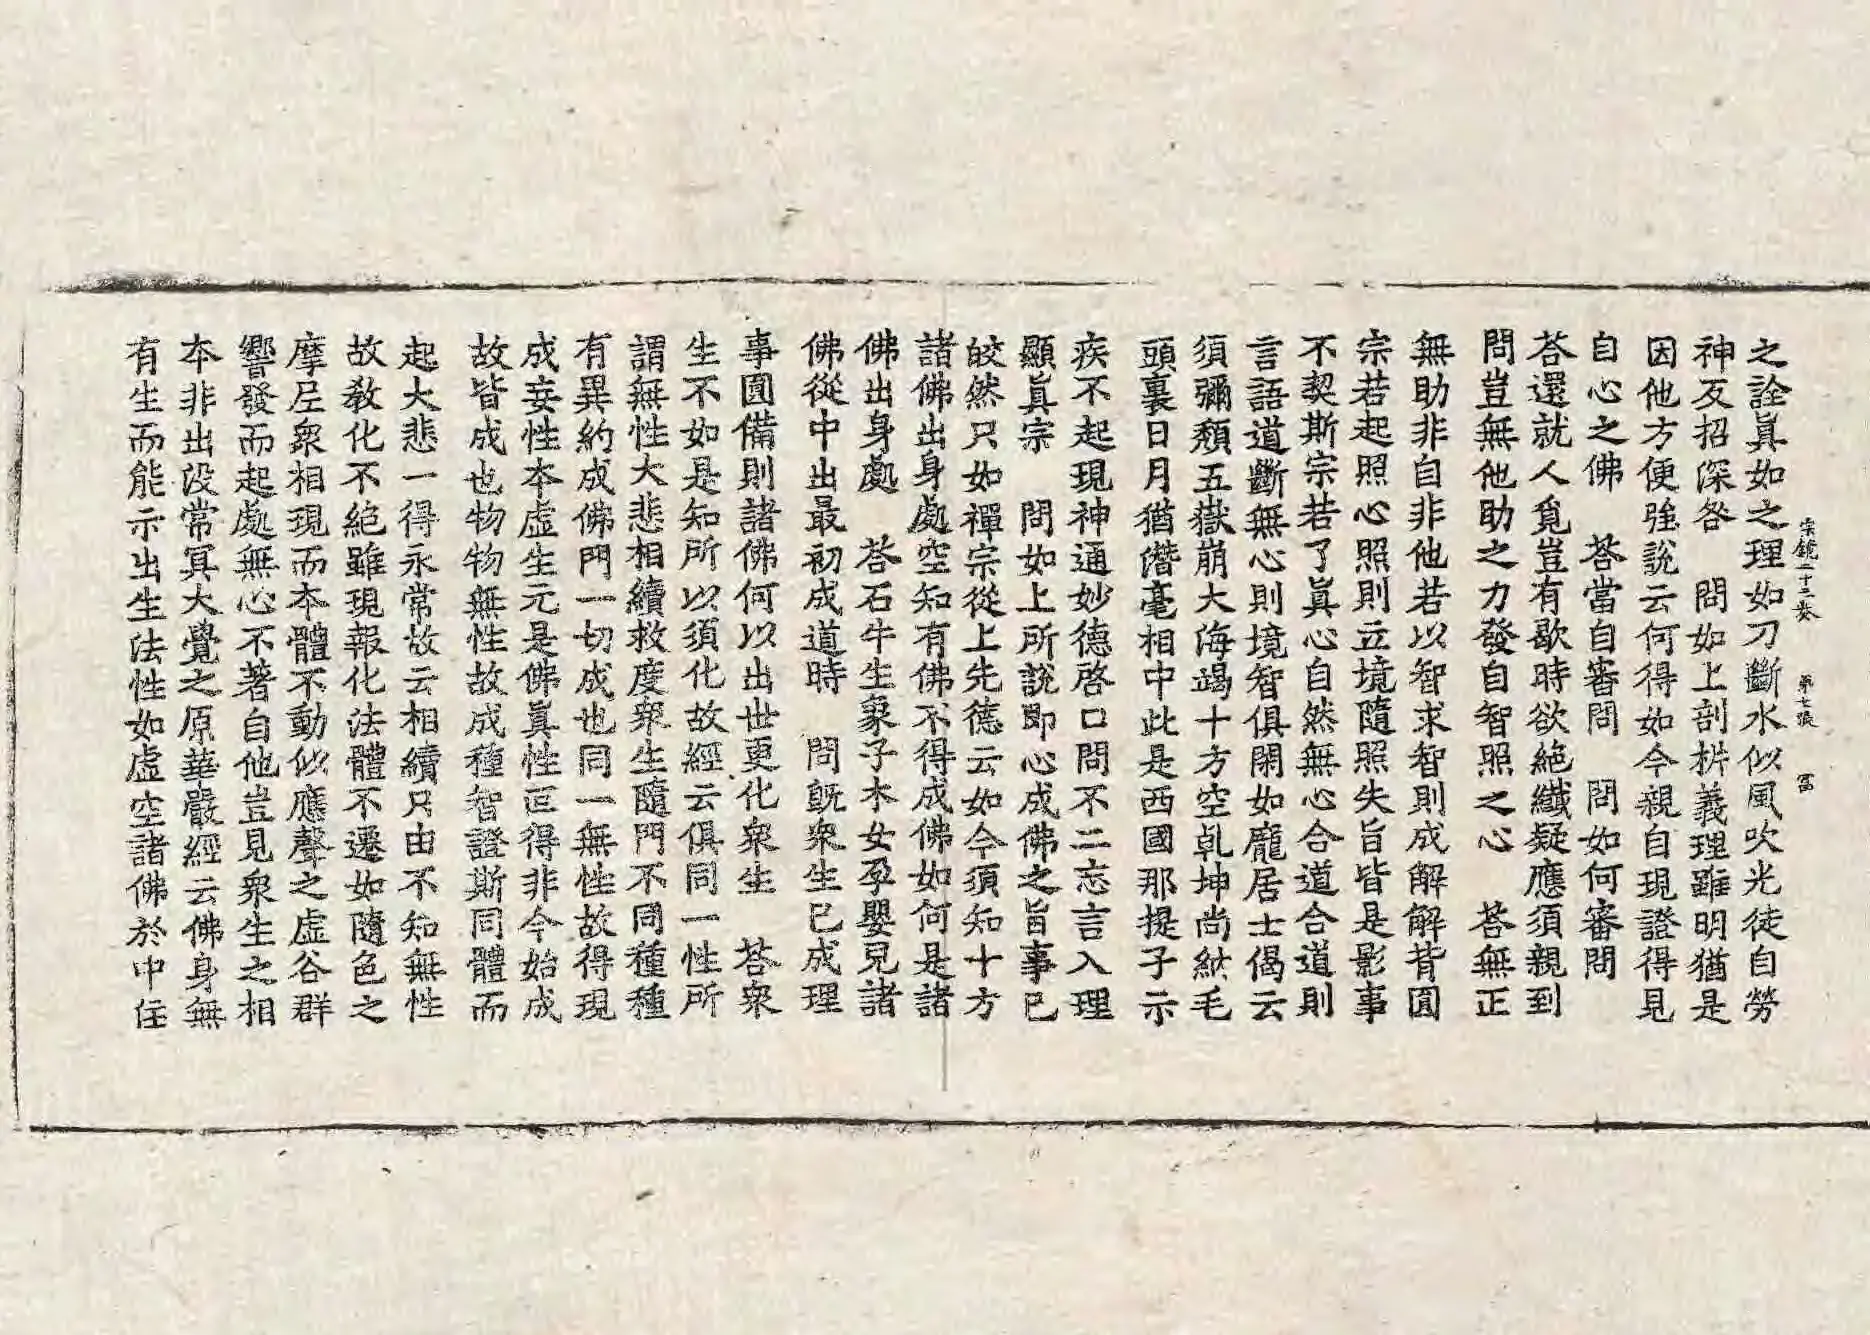 宗鏡二十三卷　第七張　富
之詮眞如之理如刀斷水似風吹光徒自勞
神反招深咎　問如上剖析義理雖明猶是
因他方便強說云何得如今親自現證得見
自心之佛　荅當自審問　問如何審問
荅還就人覓豈有歇時欲絶纖疑應須親到
問豈無他助之力發自智照之心　荅無正
無助非自非他若以智求智則成解解背圓
宗若起照心照則立境隨照失旨皆是影事
不契斯宗若了眞心自然無心合道合道則
言語道斷無心則境智俱閑如龐居士偈云
須彌頹五嶽崩大海竭十方空乹坤尚納毛
頭裏日月猶潛毫相中此是西國那提子示
疾不起現神通妙德啓口問不二忘言入理
顯眞宗　問如上所說即心成佛之旨事已
皎然只如禪宗從上先德云如今須知十方
諸佛出身處空知有佛不得成佛如何是諸
佛出身處　荅石牛生象子木女孕嬰兒諸
佛從中出最初成道時　問旣衆生已成理
事圓備則諸佛何以出世更化衆生　荅衆
生不如是知所以須化故經云俱同一性所
謂無性大悲相續救度衆生隨門不同種種
有異約成佛門一切成也同一無性故得現
成妄性本虛生元是佛眞性叵得非今始成
故皆成也物物無性故成種智證斯同體而
起大悲一得永常故云相續只由不知無性
故敎化不絶雖現報化法體不遷如隨色之
摩尼衆相現而本體不動似應聲之虛谷群
響發而起處無心不著自他豈見衆生之相
本非出没常冥大覺之原華嚴經云佛身無
有生而能示出生法性如虛空諸佛於中住